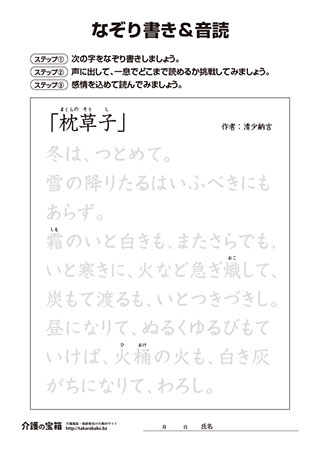 なぞり書き＆音読
ステップ① 次の字をなぞり書きしましょう。
ステップ② 声に出して、一息でどこまで読めるか挑戦してみましょう。
ステップ③ 感情を込めて読んでみましょう。
まくらの そう し
「枕草子」 作者：清少納言
冬は、つとめて。
雪の降りたるはいふべきにも
あらず。
しも
霜のいと白きも、またさらでも、
おこ
いと寒きに、火など急ぎ熾して、
炭もて渡るも、いとつきづきし。
昼になりて、ぬるくゆるびもて
ひ おけ
いけば、火桶の火も、白き灰
がちになりて、わろし。
介護の宝箱 介護施設・高齢者向けの素材サイト
http://takarabako.bz
月 日 氏名